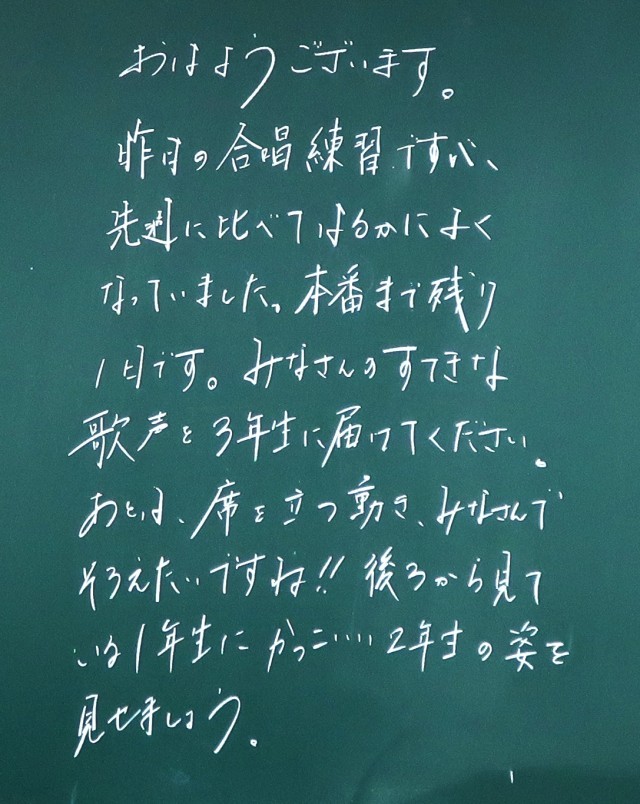 おはようございます。
昨日の合唱練習ですが、
先週に比べてはるかによく
なっていました。本番まで残り
1日です。みなさんのすてきな
歌声を3年生に届けてください。
あとは、席を立つ動き、みなさんで
そろえたいですね!! 後ろから見て
いる1年生にかっこいい2年生の姿を
見せましょう。